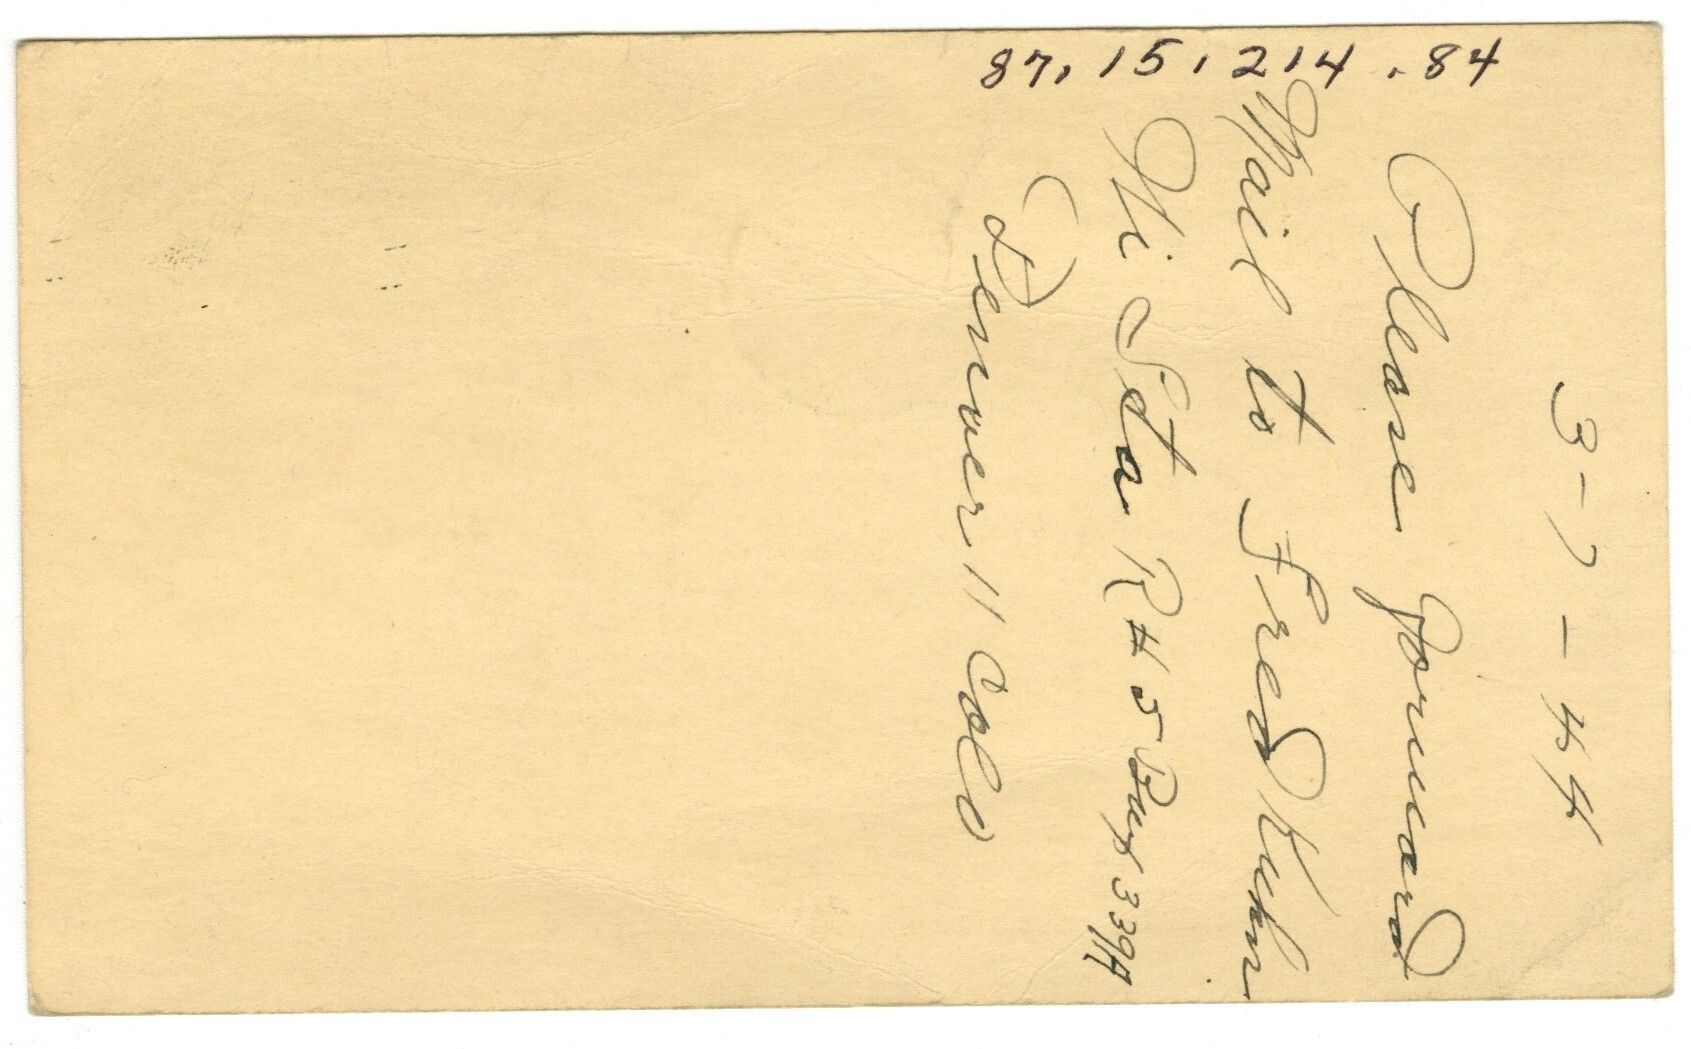 87.15.214.84
3-7-44
Please forward
Mail to Fred Kuhn
Hi Sta R#5 Box 339A
Denver 11 Colo